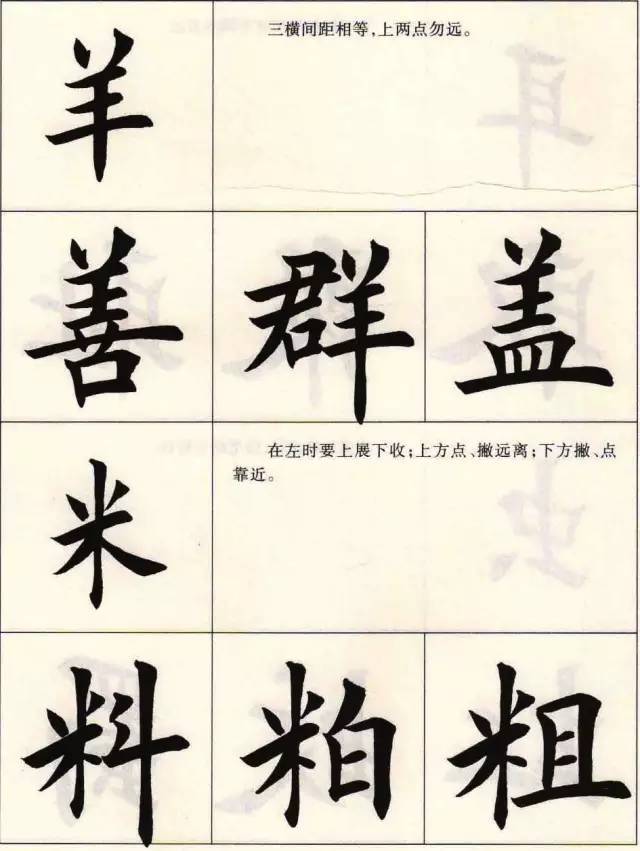 羊
三横间距相等，上两点勿远。
善 群 盖
米
在左时要上展下收；上方点、撇远离；下方撇、点
靠近。
料 粕 粗